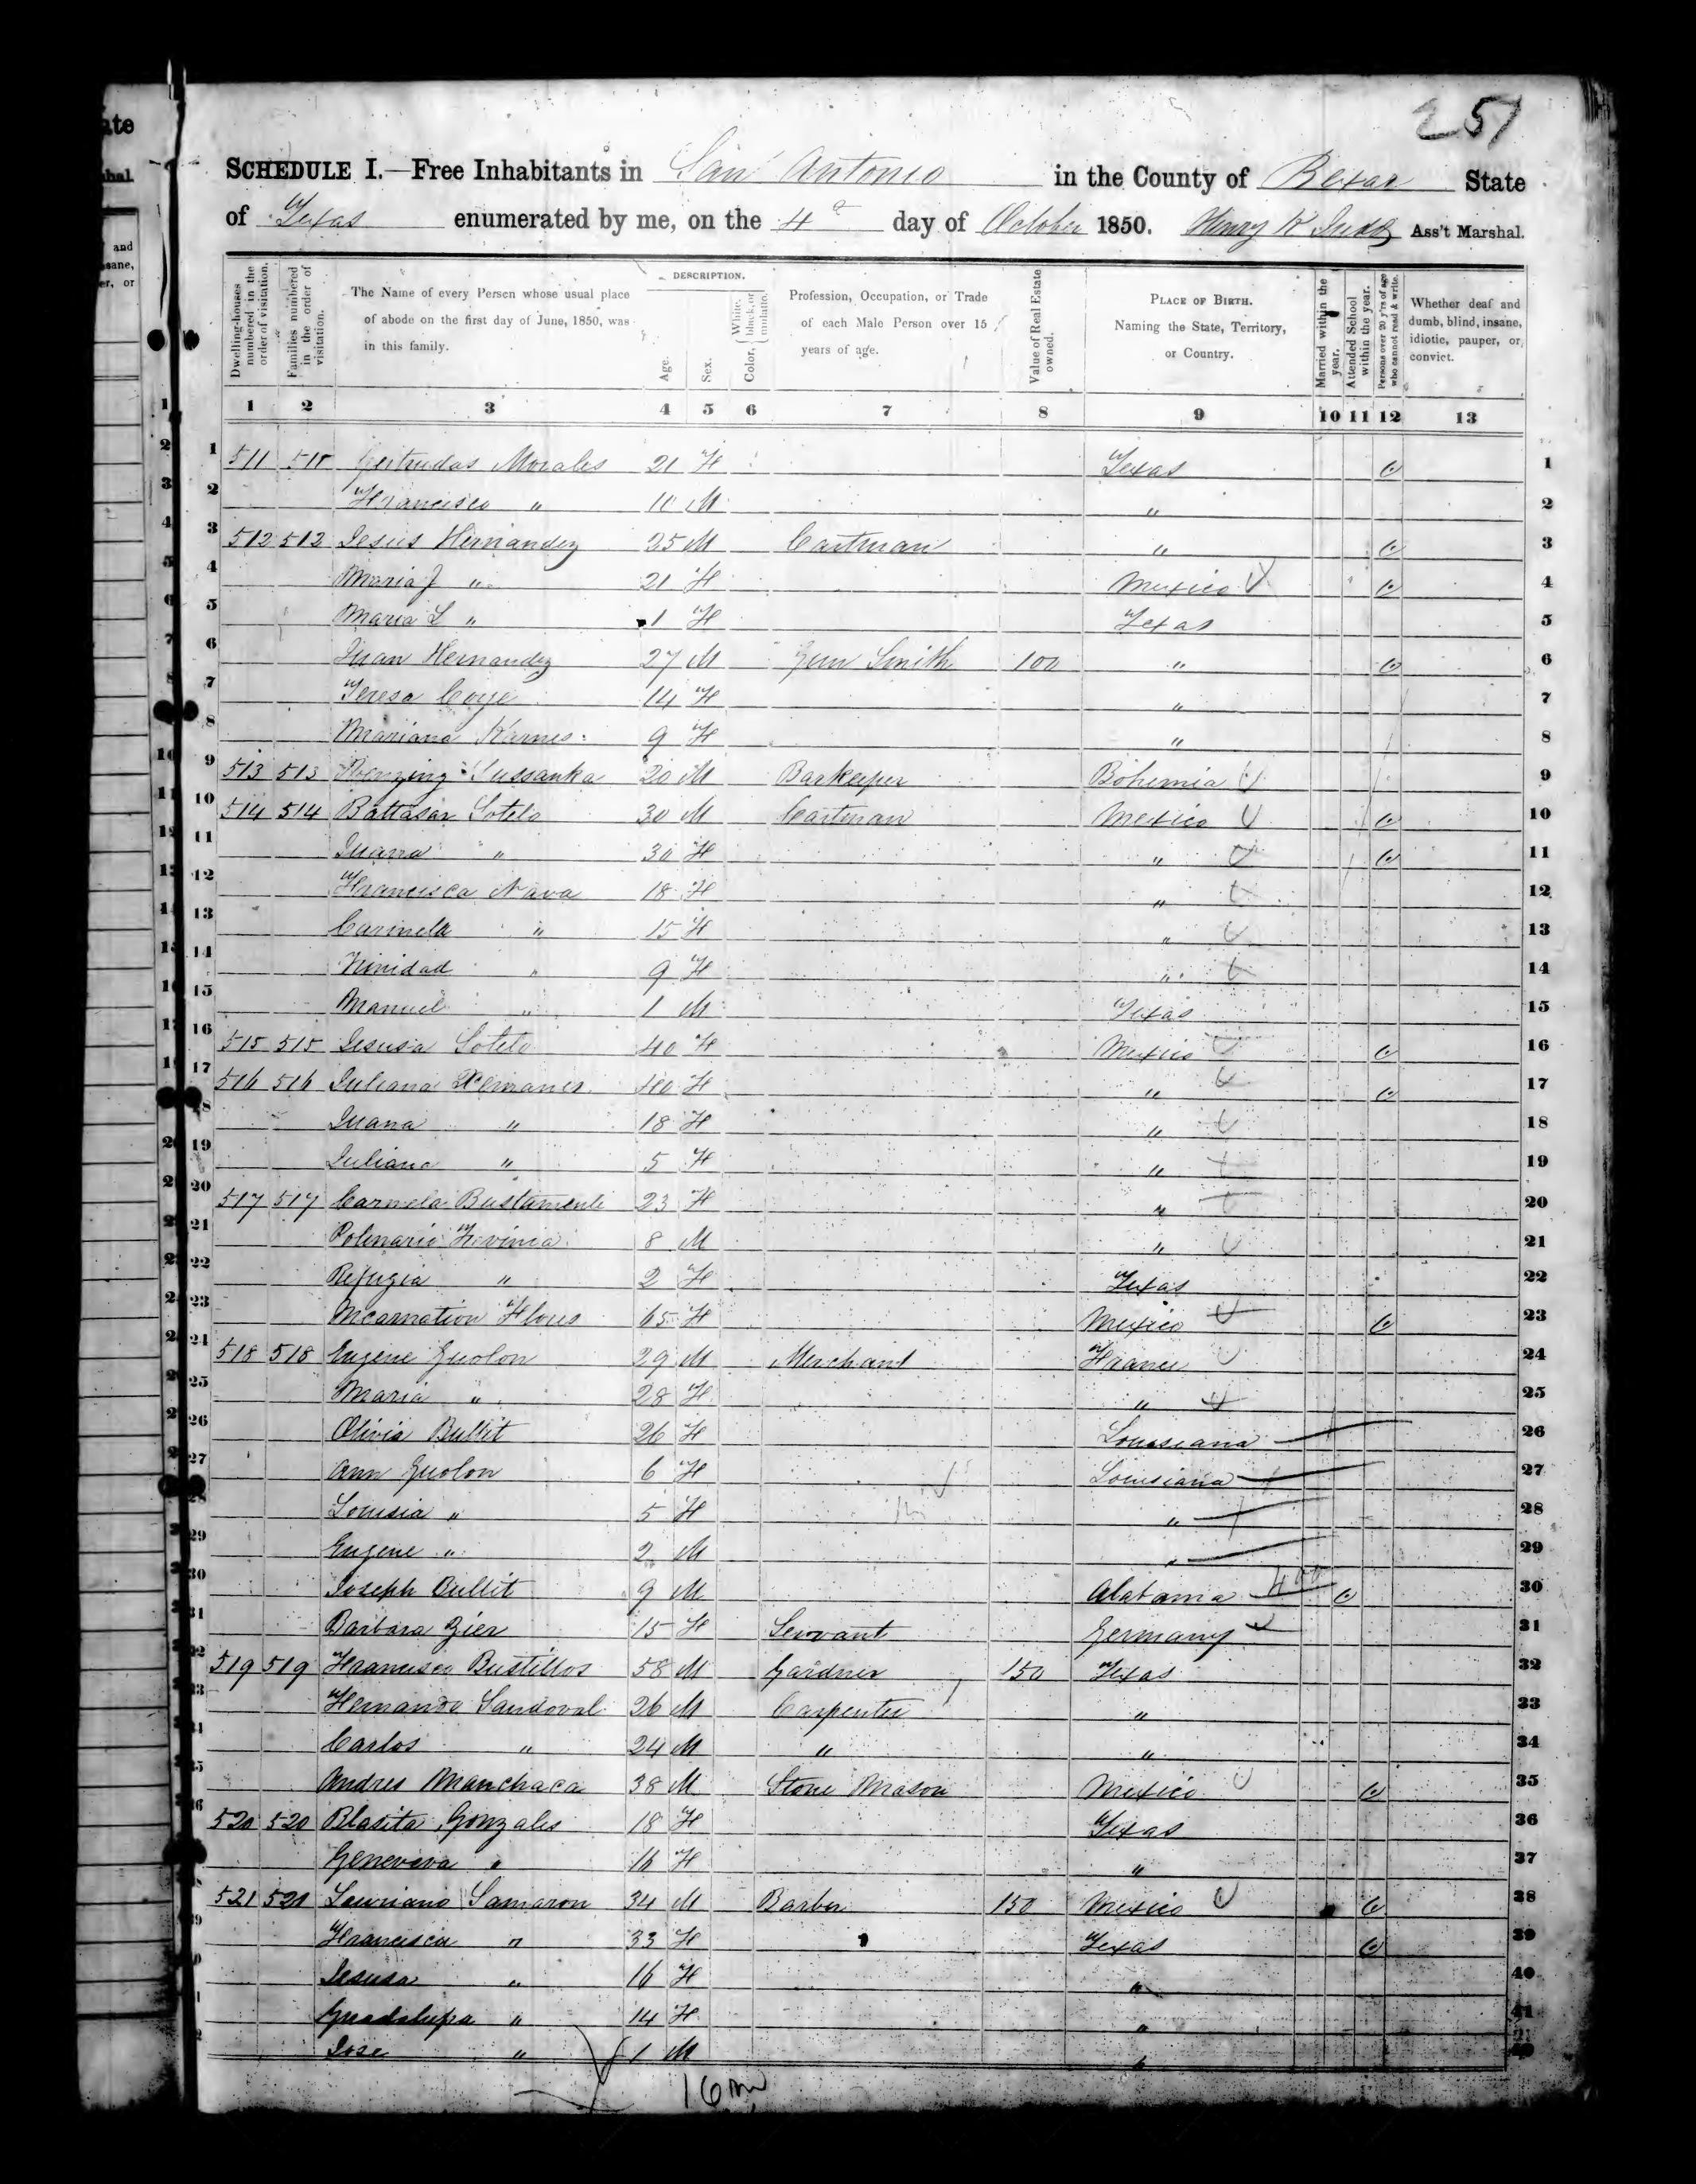 251
SCHEDULE I.—Free Inhabitants in San Antonio in the County of Bexar State
of Texas enumerated by me, on the 4th day of October 1850. Henry K Judd Ass't Marshal.
Dwelling-houses numbered in the order of visitation.
Families numbered in the order of visitation.
The Name of every Person whose usual place of abode on the first day of June, 1850, was in this family.
DESCRIPTION.
Age.
Sex.
Color, White, black, or mulatto.
Profession, Occupation, or Trade of each Male Person over 15 years of age.
Value of Real Estate owned.
PLACE OF BIRTH. Naming the State, Territory, or Country.
Married within the year.
Attended School within the year.
Persons over 20 y'rs of age who cannot read & write.
Whether deaf and dumb, blind, insane, idiotic, pauper, or convict.
1 2 3 4 5 6 7 8 9 10 11 12 13
1 511 511 Gertrudas Morales 21 F Texas 1
2 Francisco " M " 2
3 512 512 Jesus Hernandez 25 M Cartman " 3
4 Maria J " 21 F Mexico 4
5 Maria L " 1 F Texas 5
6 Juan Hernandez 27 M Gun Smith 100 " 6
7 Teresa Coye 14 F " 7
8 Mariana Karnes 9 F " 8
9 513 513 20 M Barkeeper Bohemia 9
10 514 514 Battasar Sotelo 30 M Cartman Mexico 10
11 Juana " 30 F " 11
12 Francisca Nava 18 F " 12
13 Carmela " 15 F " 13
14 Trinidad " 9 F " 14
15 Manuel " 1 M Texas 15
16 515 515 Jesusa Sotelo 40 F Mexico 16
17 516 516 Juliana 40 F " 17
18 Juana " 18 F " 18
19 Juliana " 5 F " 19
20 517 517 Carmela Bustamente 23 F " 20
21 Polinario 8 M " 21
22 Refugia " 2 F Texas 22
23 Incarnation Flores 65 F Mexico 23
24 518 518 Eugene Guolon 29 M Merchant France 24
25 Maria " 28 F " 25
26 Olivia Bullit 26 F Louisiana 26
27 Ann Guolon 6 F Louisiana 27
28 Louisia " 5 F " 28
29 Eugene " 2 M " 29
30 Joseph Bullit 9 M Alabama 30
31 Barbara Zier 15 F Servant Germany 31
32 519 519 Francisco Bustillos 58 M Gardner 150 Texas 32
33 Fernando Sandoval 26 M Carpenter " 33
34 Carlos " 24 M " " 34
35 Andres Manchaca 38 M Stone Mason Mexico 35
36 520 520 Blasita Gonzales 18 F Texas 36
37 Geneveva " 16 F " 37
38 521 521 Lauriano Samaron 34 M Barber 150 Mexico 38
39 Francisca " 33 F Texas 39
40 Jesusa " 16 F " 40
41 Guadalupa " 14 F " 41
Jose " 1 M "
16 m